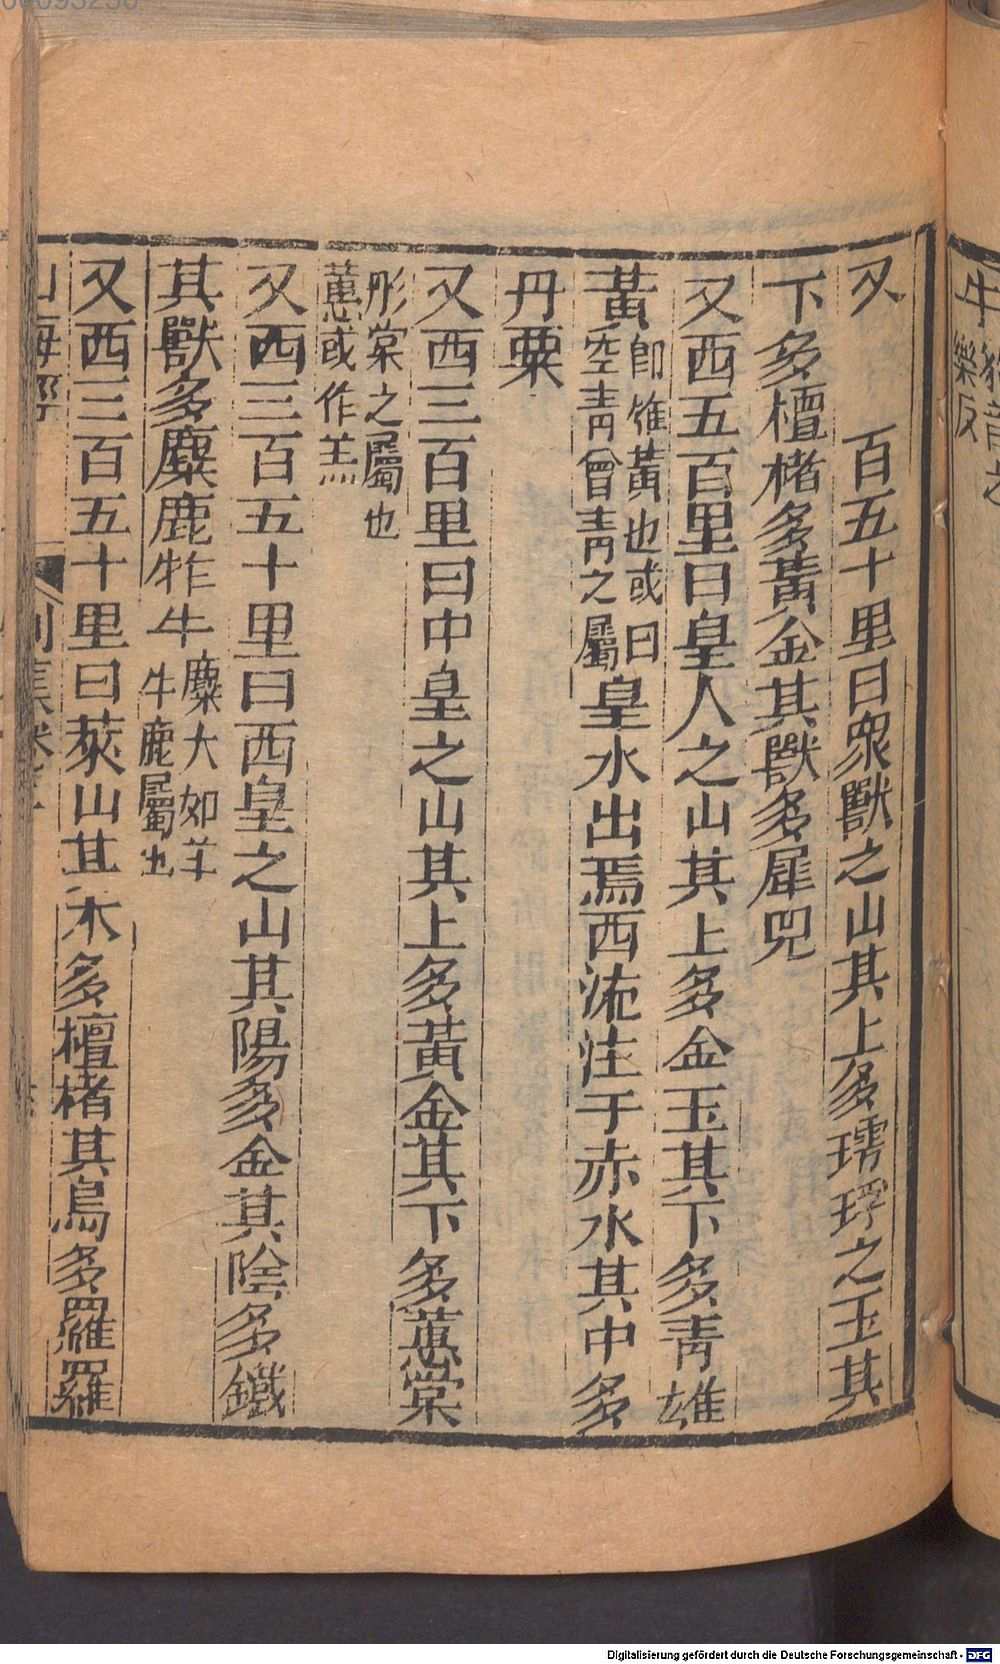 又　　百五十里曰衆獸之山其上多㻬琈之玉其
下多檀楮多黃金其獸多犀兕
又西五百里曰皇人之山其上多金玉其下多青雄
黃即雌黃也或曰空青曾青之屬皇水出焉西流注于赤水其中多
丹粟
又西三百里曰中皇之山其上多黃金其下多蕙棠
彤棠之屬也蕙或作羔
又西三百五十里曰西皇之山其陽多金其陰多鐵
其獸多麋鹿㸲牛麋大如羊牛鹿屬也
又西三百五十里曰萊山其木多檀楮其鳥多羅羅
山海經
牛
樂反
00093230
Digitalisierung gefördert durch die Deutsche Forschungsgemeinschaft - DFG